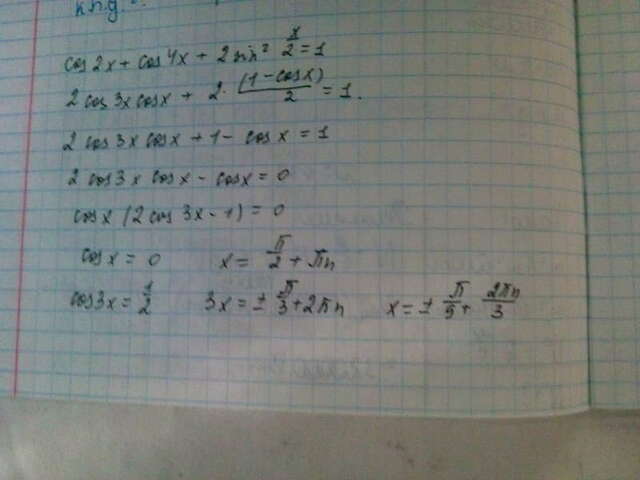 к.п.д
cos 2x + cos 4x + 2 sin² x/2 = 1
2 cos 3x cosx + 2 · (1 - cosx)/2 = 1.
2 cos 3x cosx + 1 - cosx = 1
2 cos 3x cosx - cosx = 0
cosx (2 cos 3x - 1) = 0
cosx = 0 x = π/2 + πn
cos 3x = 1/2 3x = ± π/3 + 2πn x = ± π/9 + 2πn/3